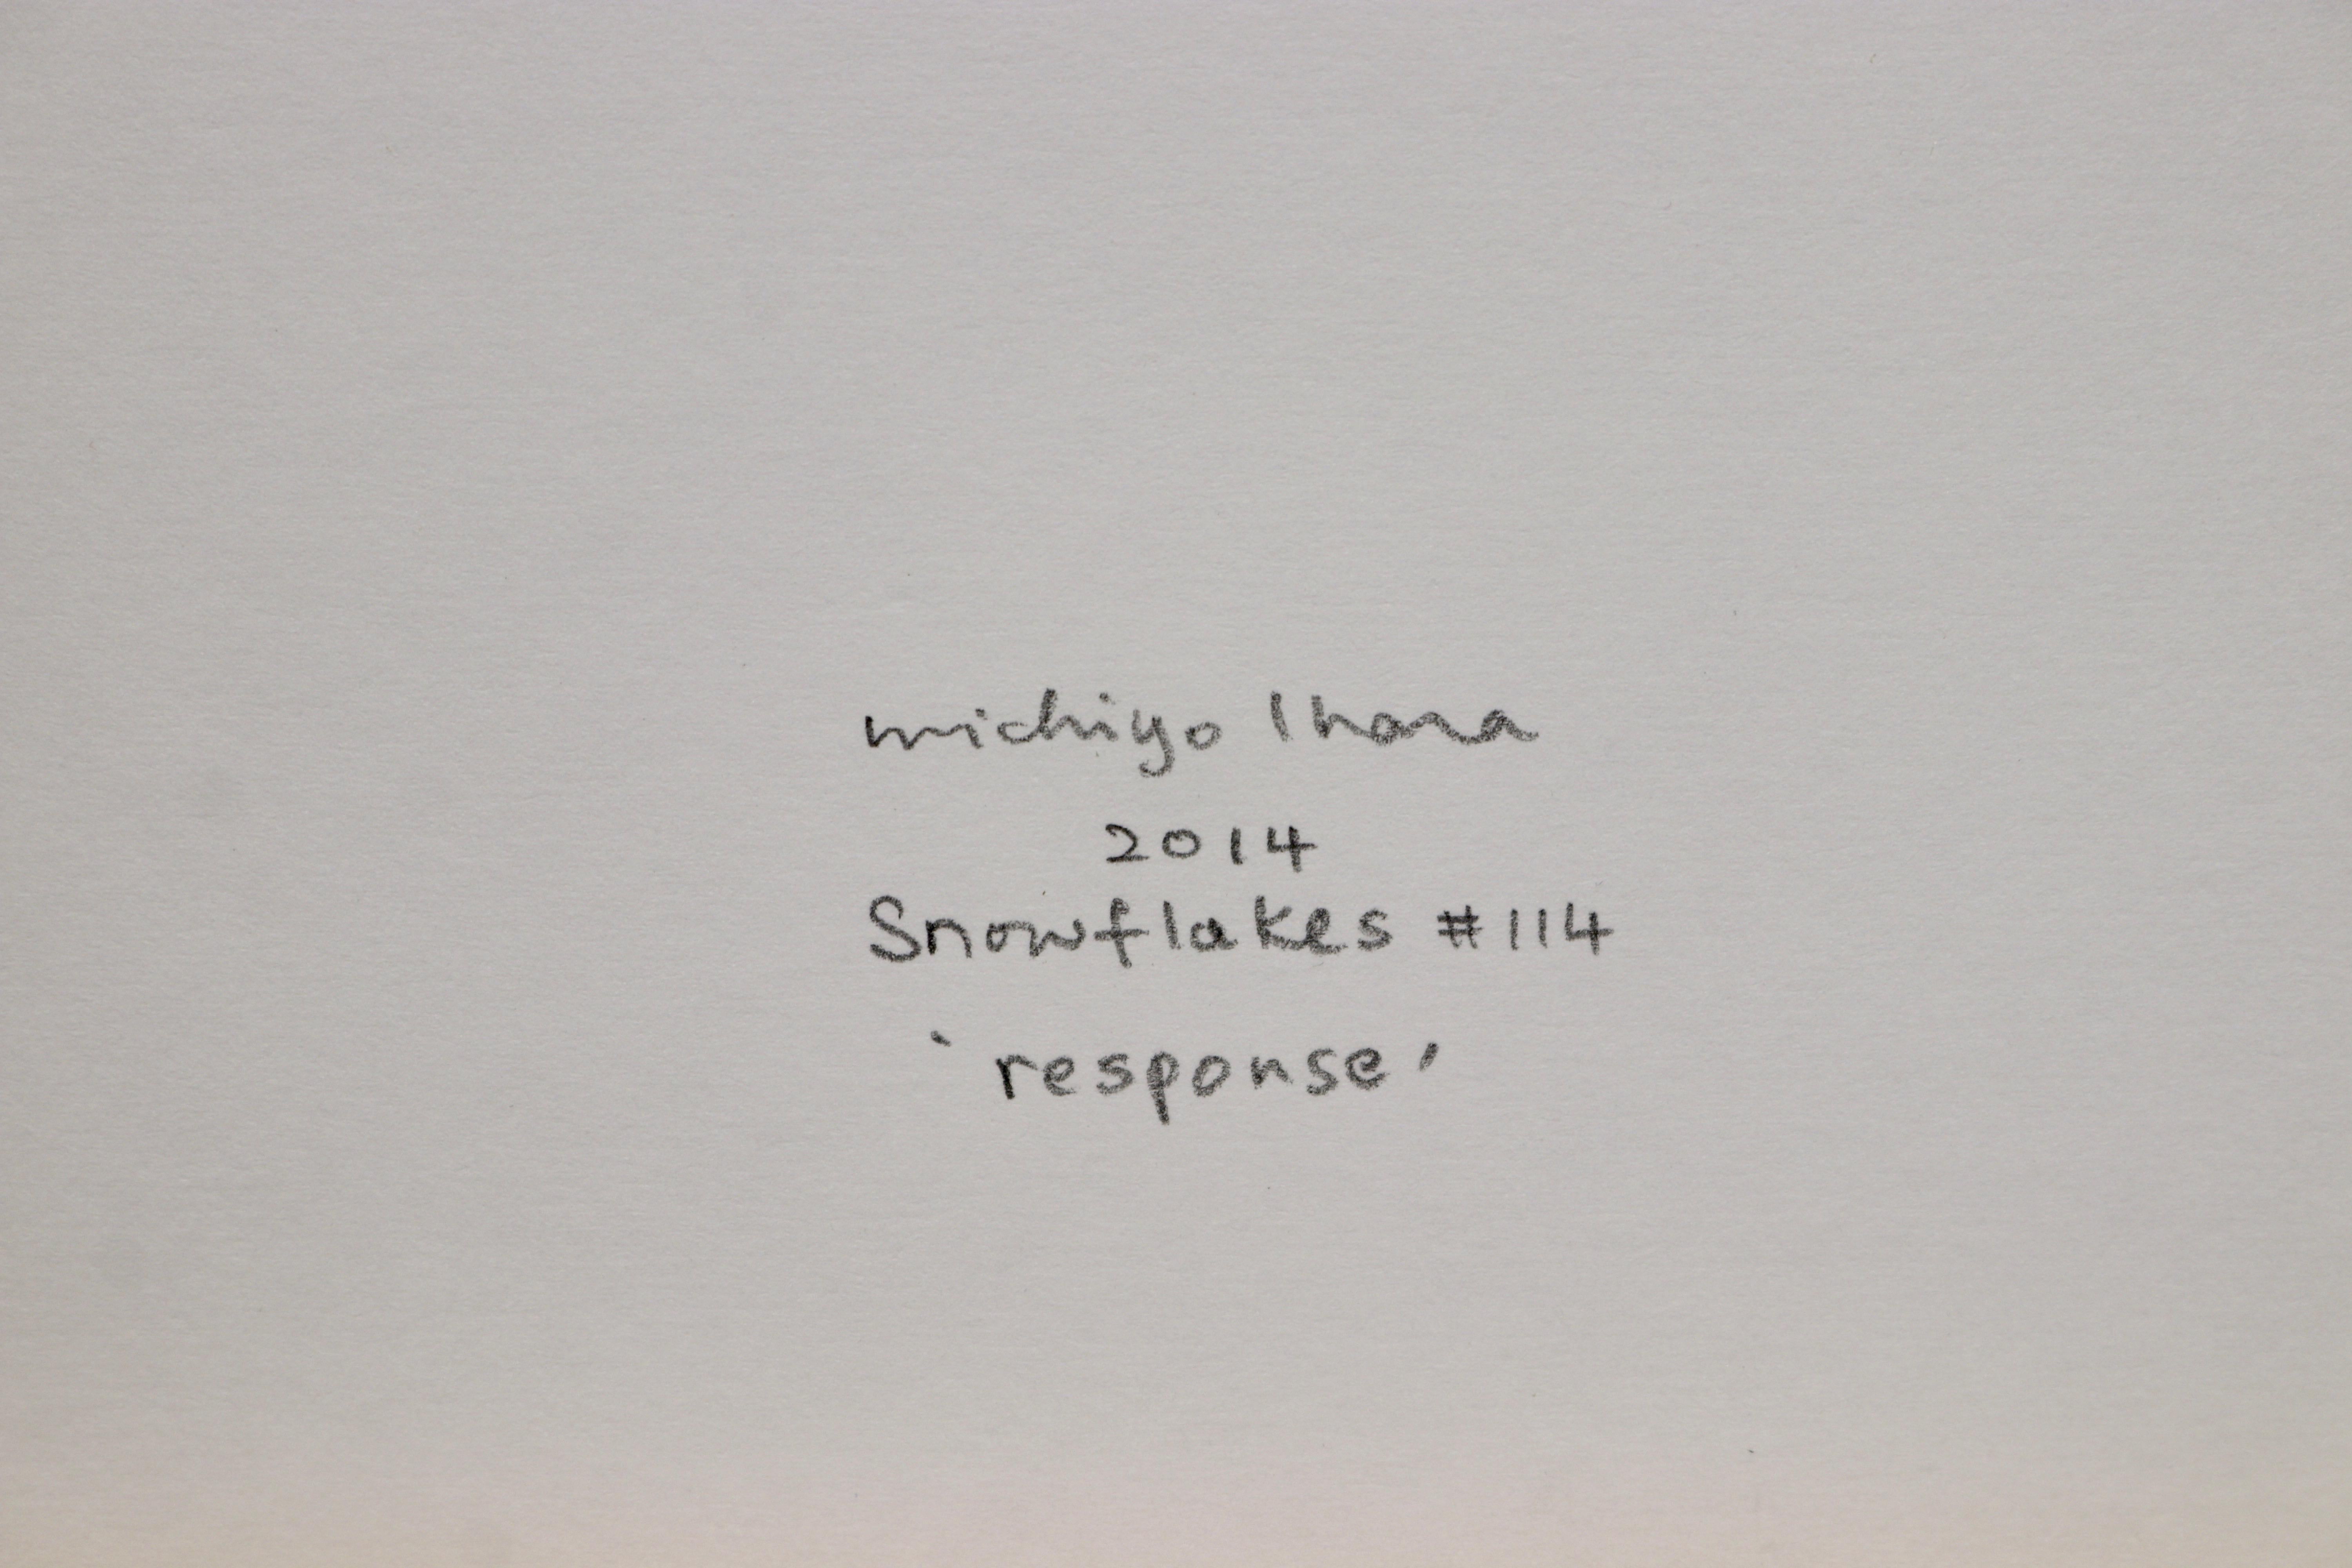 michiyo Ihara
2014
Snowflakes #114
'response'